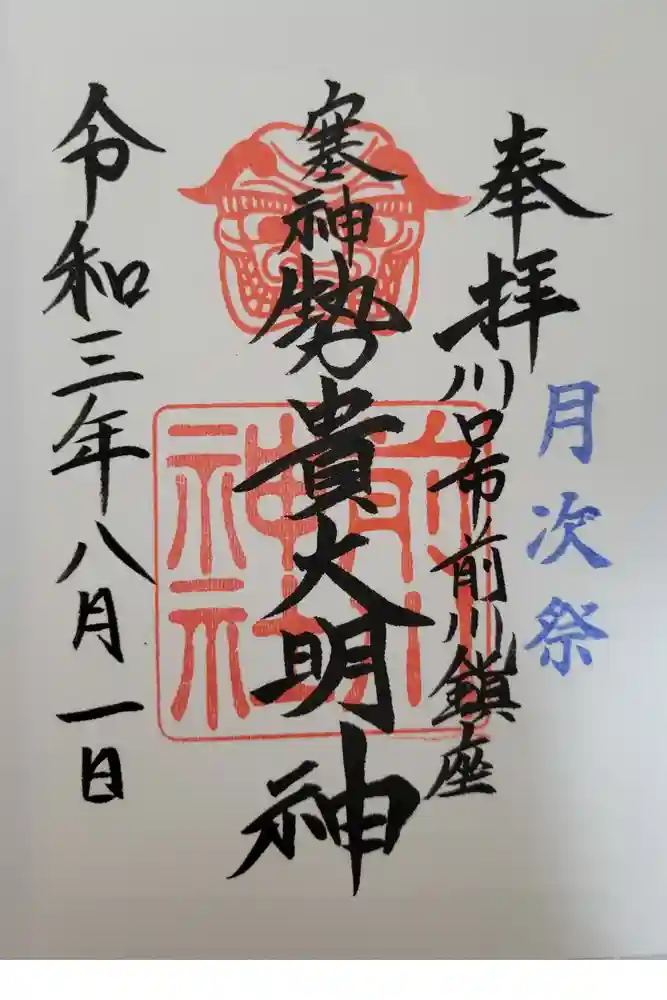 月次祭
奉拝
川口市前川鎮座
塞神
勢貴大明神
前川
神社
令和三年八月一日